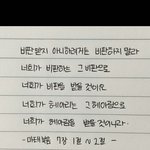 비판받지 아니하려거든 비판하지 말라
너희가 비판하는 그 비판으로
너희가 비판을 받을 것이요
너희가 헤아리는 그 헤아림으로
너희가 헤아림을 받을 것이니라
- 마태복음 7장 1절 ~ 2절 -